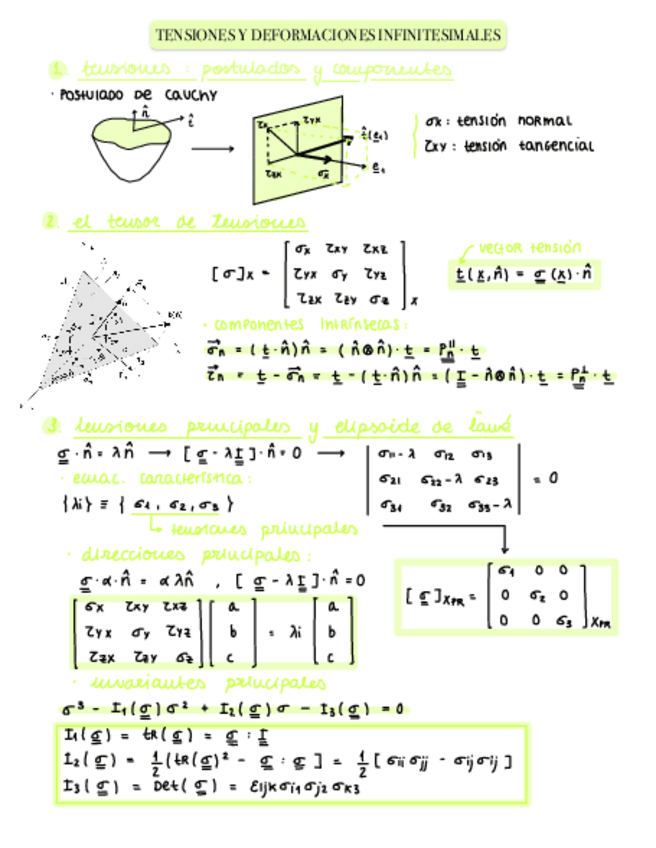 TENSIONES Y DEFORMACIONES INFINITESIMALES
1. tensiones : postulados y componentes
· POSTULADO DE CAUCHY
n̂
t̂
τyx
τzx
σx
t̂(e1)
e1
σx : tensión normal
τxy : tensión tangencial
2. el tensor de tensiones
[σ]x = [ σx τxy τxz
τyx σy τyz
τzx τzy σz ]x
vector tensión
t(x,n̂) = σ(x)·n̂
· componentes intrínsecas:
σ⃗n = (t·n̂)n̂ = (n̂⊗n̂)·t = Pn^∥·t
τ⃗n = t - σ⃗n = t - (t·n̂)n̂ = (I - n̂⊗n̂)·t = Pn^⊥·t
3. tensiones principales y elipsoide de Lamé
σ·n̂ = λn̂ → [σ - λI]·n̂ = 0 →
| σ11-λ σ12 σ13
σ21 σ22-λ σ23
σ31 σ32 σ33-λ | = 0
· ecuac. característica:
{λi} ≡ {σ1, σ2, σ3}
↳ tensiones principales
· direcciones principales:
σ·α·n̂ = αλn̂ , [σ - λI]·n̂ = 0
[σ]XPR = [ σ1 0 0
0 σ2 0
0 0 σ3 ]XPR
[ σx τxy τxz ] [ a ] [ a ]
[ τyx σy τyz ] [ b ] = λi [ b ]
[ τzx τzy σz ] [ c ] [ c ]
· invariantes principales
σ³ - I1(σ)σ² + I2(σ)σ - I3(σ) = 0
I1(σ) = tr(σ) = σ : I
I2(σ) = 1/2 (tr(σ)² - σ : σ ] = 1/2 [σii σjj - σij σij]
I3(σ) = Det(σ) = εijk σi1 σj2 σk3